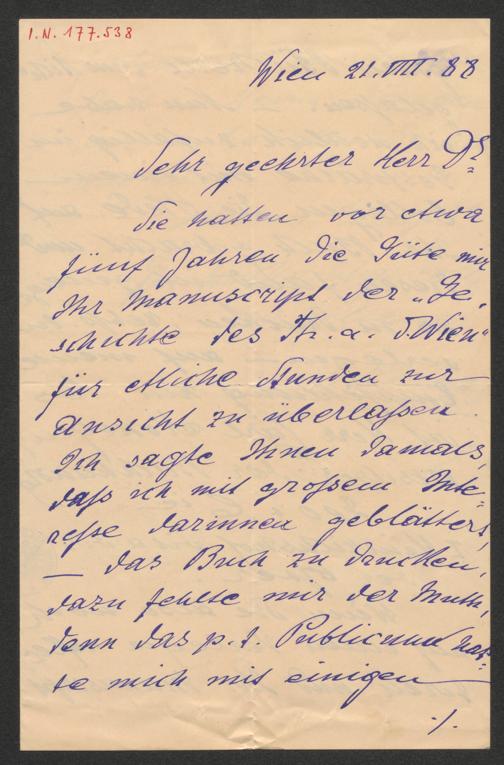 I.N. 177.538
Wien 21.VIII.88
Sehr geehrter Herr Dr
Sie hatten vor etwa
fünf Jahren die Güte mir
Ihr Manuscript der „Ge-
schichte des Th. a. d. Wien"
für etliche Stunden zur
Ansicht zu überlaßen.
Ich sagte Ihnen damals,
daß ich mit großem Inte-
reße darinnen geblättert,
— das Buch zu drucken,
dazu fehlte mir der Muth,
denn das p. t. Publicum hat-
te mich mit einigen
./.